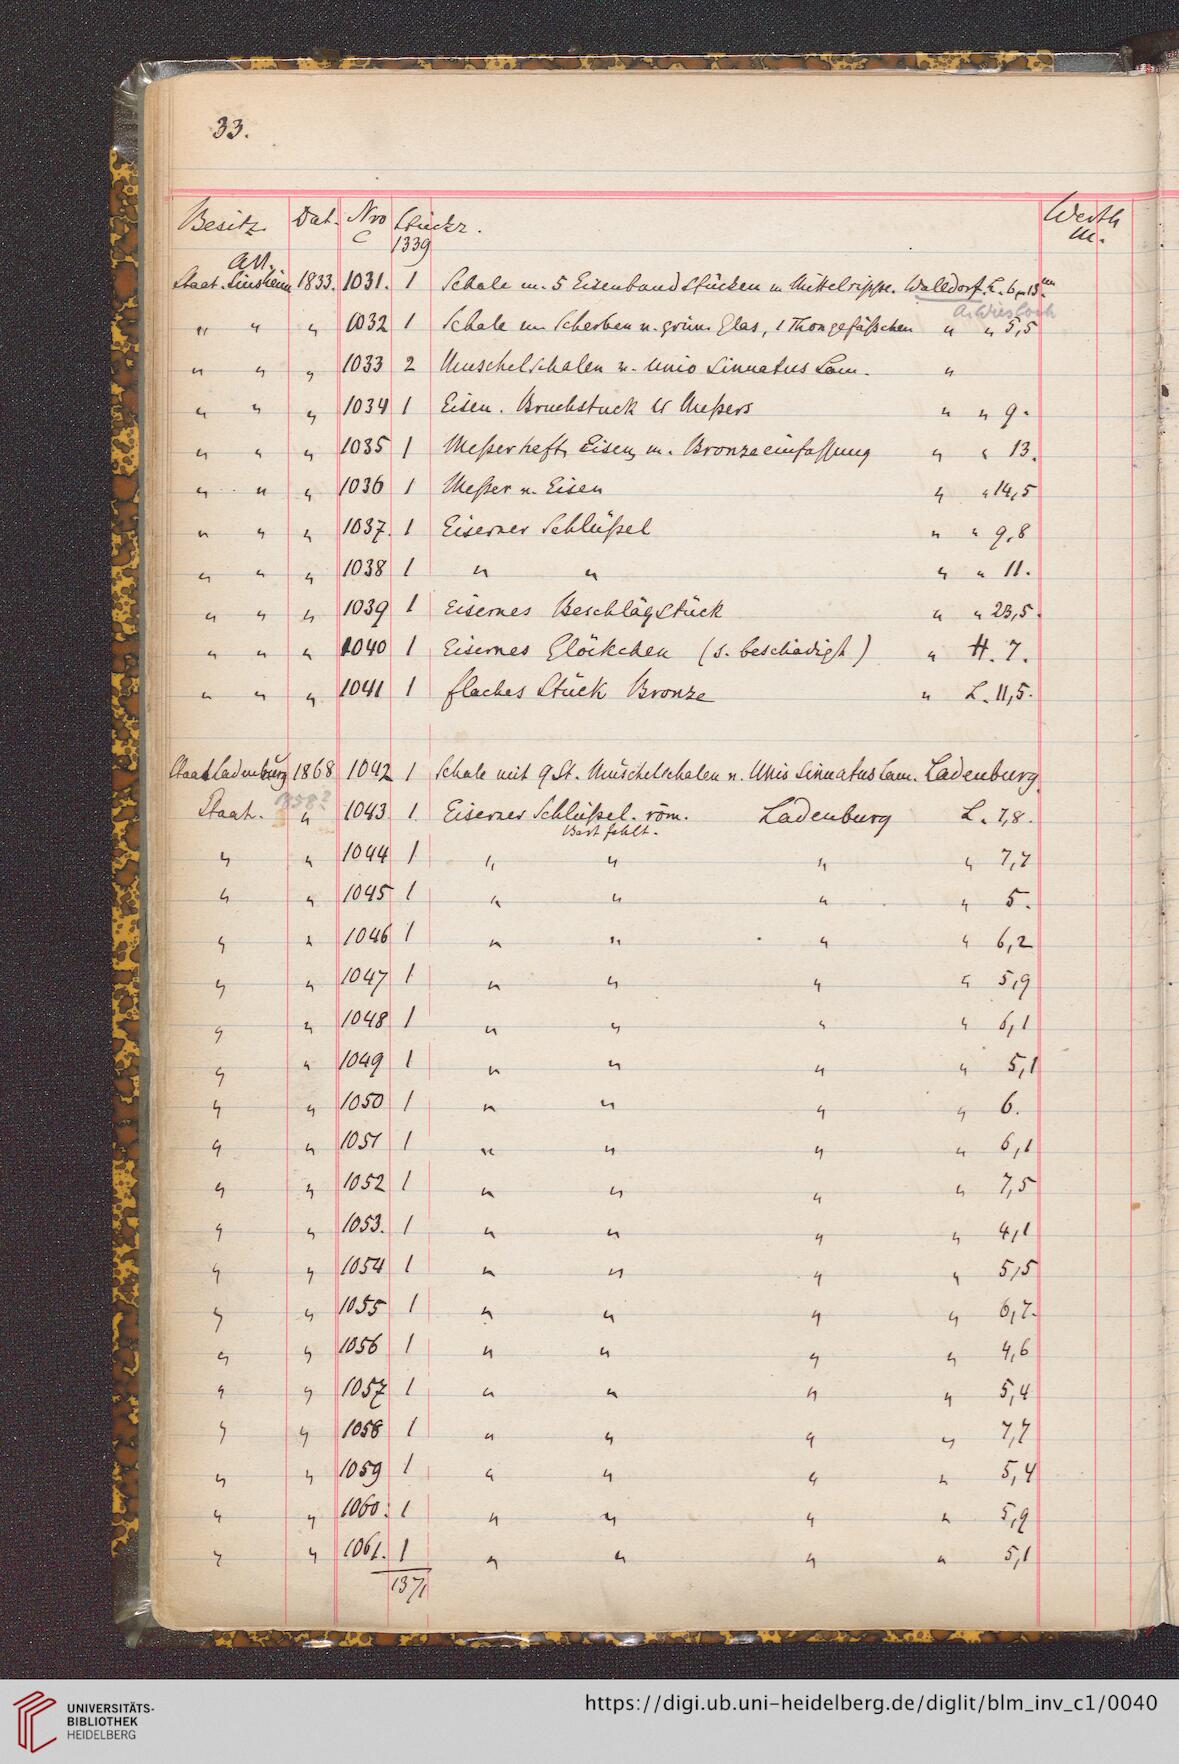 33.
Besitz. Dat. Nro C Stückz. Werth M.
1339
Alt.
Staat. Sinsheim 1833. 1031. 1 Schale m. 5 Eisenbandstücken u Mittelrippe. Walldorf. L. 6,-13 cm.
A. Wiesloch
" " " 1032 1 Schale m Scherben u. grün. Glas, 1 Thongefäßchen " " 5,5
" " " 1033 2 Muschelschalen v. Unio Sinuatus Lam. "
" " " 1034 1 Eisen. Bruchstück Messers " " 9.
" " " 1035 1 Meßerheft, Eisen, m. Bronzeeinfassung " " 13.
" " " 1036 1 Meßer v. Eisen " " 14,5
" " " 1037. 1 Eiserner Schlüßel " " 9,8
" " " 1038 1 " " " " 11.
" " " 1039 1 Eisernes Beschlägstück " " 23,5.
" " " 1040 1 Eisernes Glöckchen (s. beschädigt) " H. 7.
" " " 1041 1 flaches Stück Bronze " L. 11,5.
Staat Ladenburg 1868 1042 1 Schale mit 9 St. Muschelschalen v. Unio Sinuatus Lam. Ladenburg.
1858?
Staat. " 1043 1 Eiserner Schlüßel. röm. Ladenburg L. 7,8.
Bart fehlt.
" " 1044 1 " " " " 7,7
" " 1045 1 " " " " 5.
" " 1046 1 " " " " 6,2
" " 1047 1 " " " " 5,9
" " 1048 1 " " " " 6,1
" " 1049 1 " " " " 5,1
" " 1050 1 " " " " 6.
" " 1051 1 " " " " 6,1
" " 1052 1 " " " " 7,5
" " 1053. 1 " " " " 4,1
" " 1054 1 " " " " 5,5
" " 1055 1 " " " " 6,7.
" " 1056 1 " " " " 4,6
" " 1057 1 " " " " 5,4
" " 1058 1 " " " " 7,7
" " 1059 1 " " " " 5,4
" " 1060. 1 " " " " 5,9
" " 1061. 1 " " " " 5,1
1371
UNIVERSITÄTS-
BIBLIOTHEK
HEIDELBERG
https://digi.ub.uni-heidelberg.de/diglit/blm_inv_c1/0040